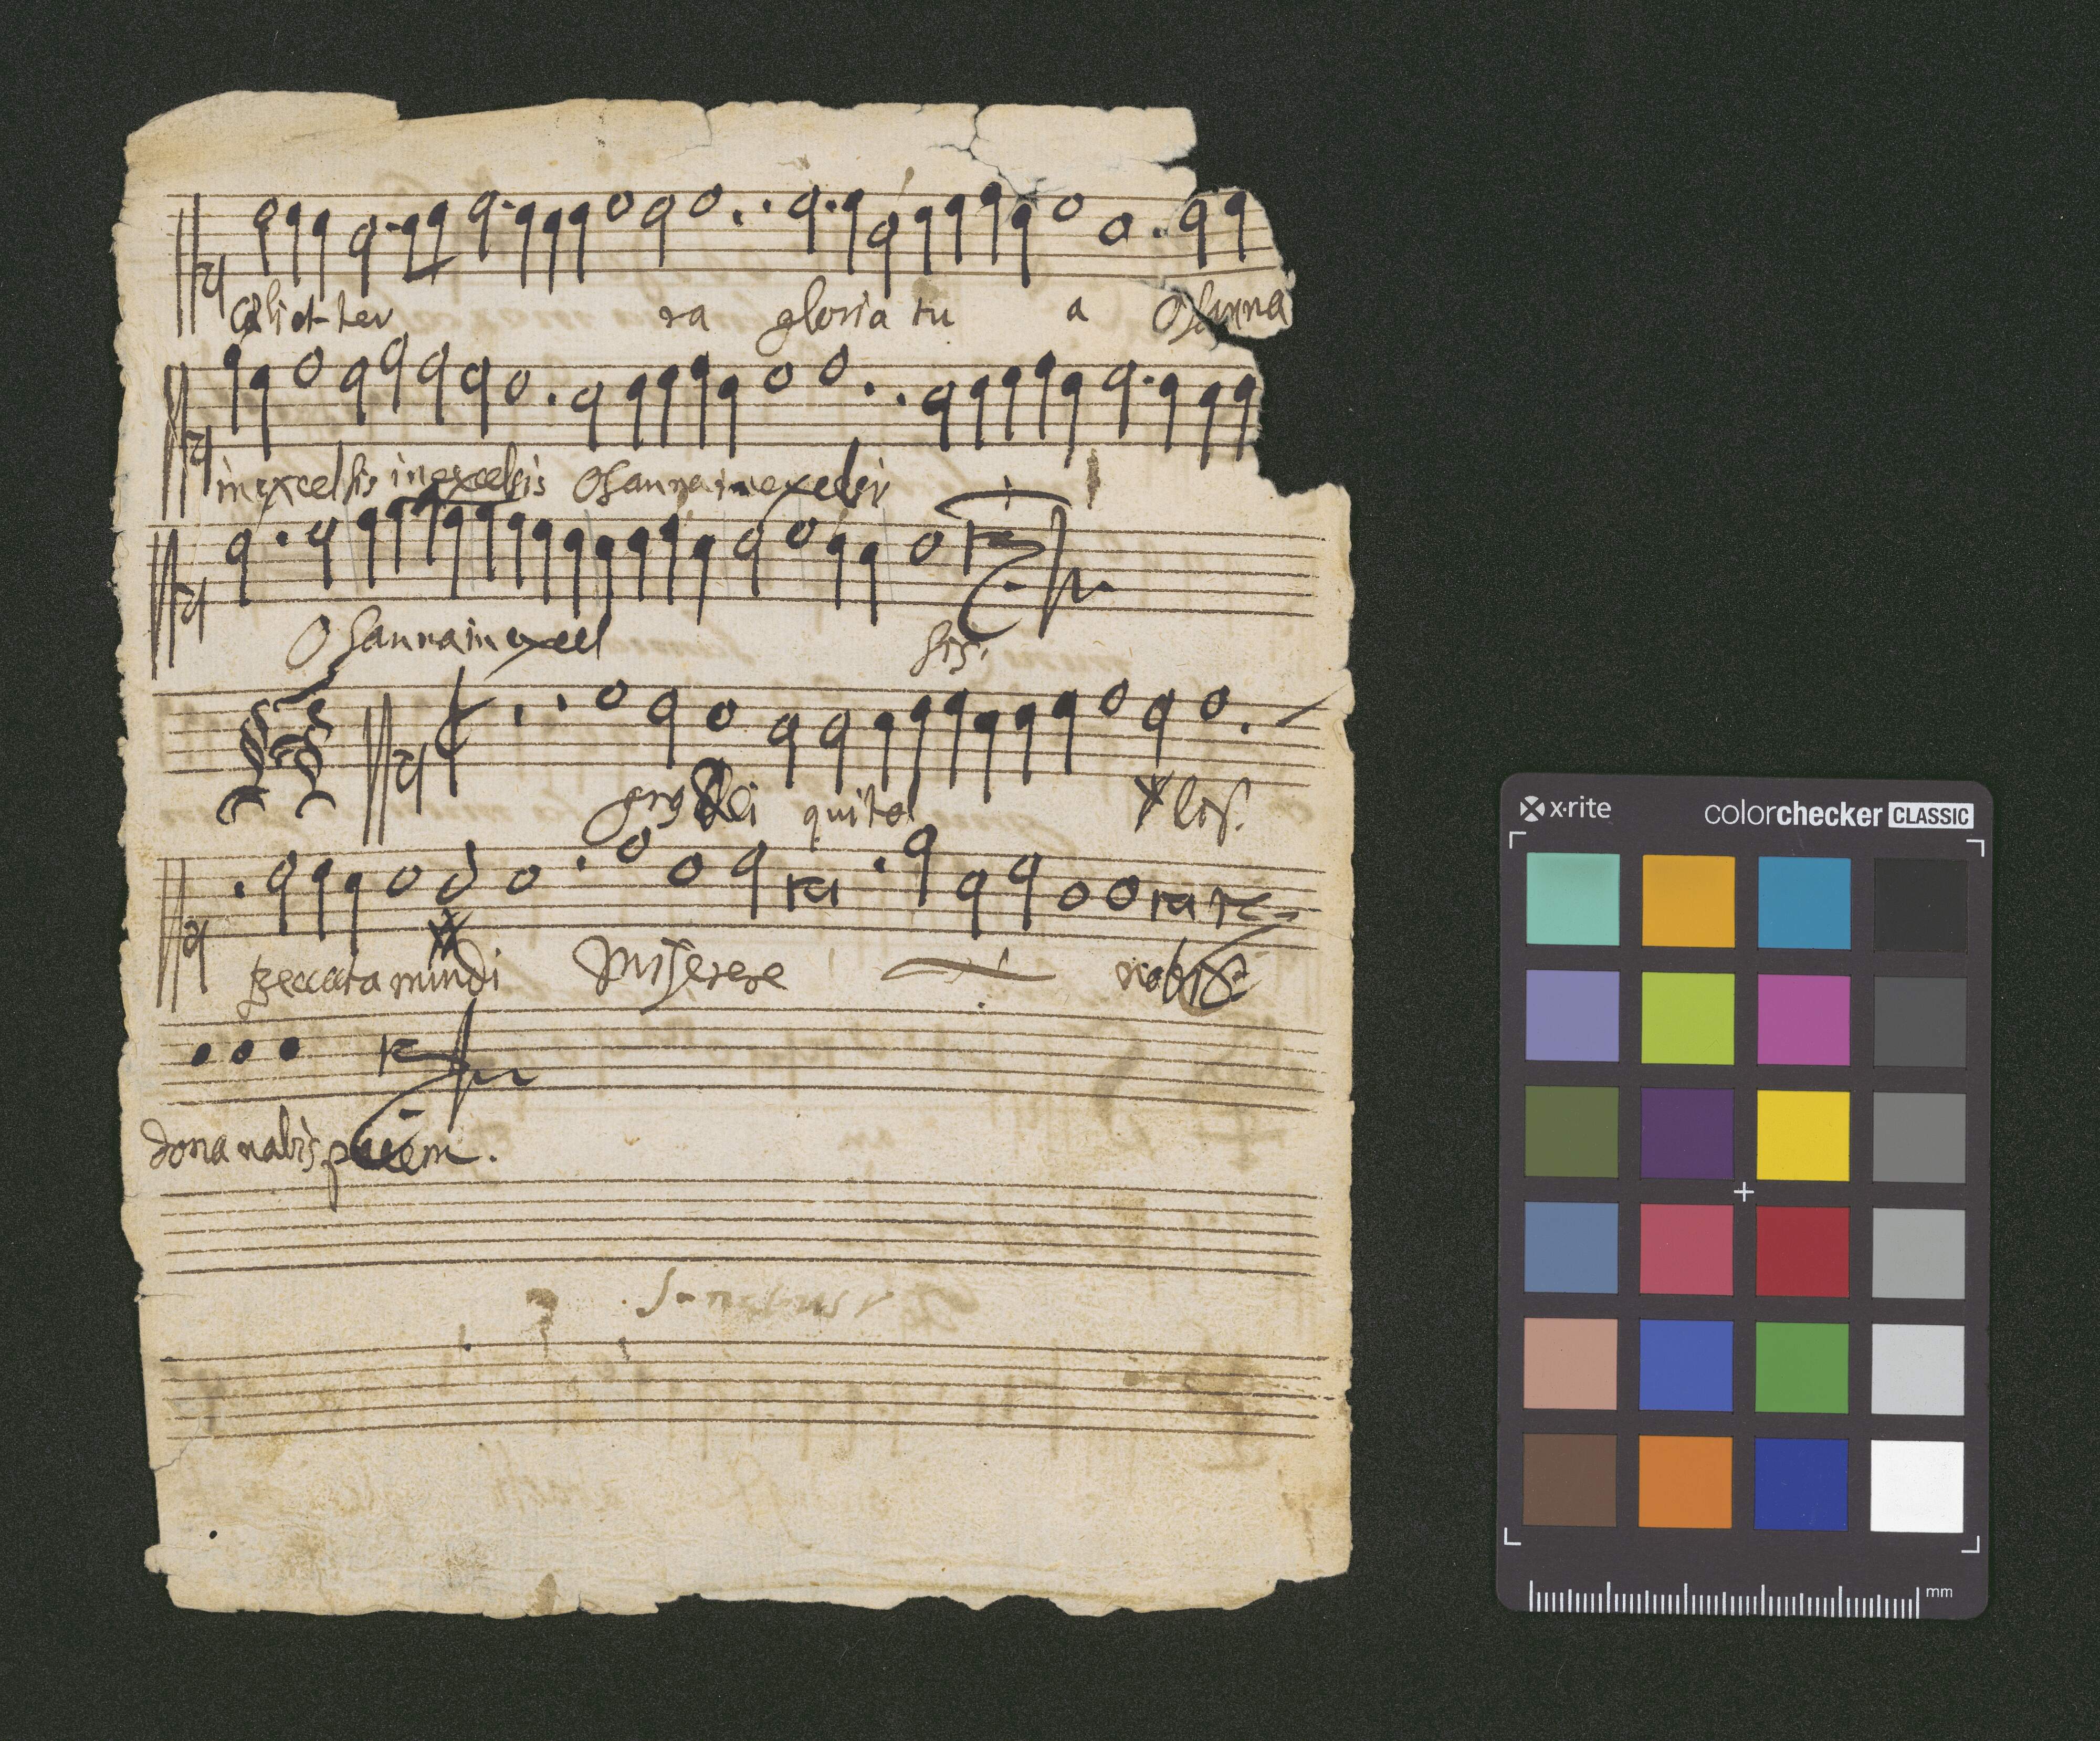 cæli et ter ra gloria tu a Osanna
in excelsis in excelsis Osanna in excelsis
Osanna in excel sis.
gnus Dei qui tol lis.
peccata mundi Miserere nobis
dona nobis pacem.
x·rite colorchecker CLASSIC
mm